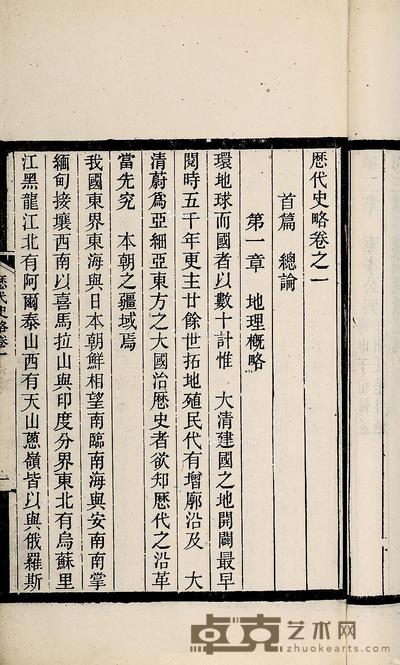 歷代史略卷之一
首篇 總論
第一章 地理槪略
環地球而國者以數十計惟 大清建國之地開闢最早
閱時五千年更主廿餘世拓地殖民代有增廓沿及 大
清蔚爲亞細亞東方之大國治歷史者欲知歷代之沿革
當先究 本朝之疆域焉
我國東界東海與日本朝鮮相望南臨南海與安南南掌
緬甸接壤西南以喜馬拉山與印度分界東北有烏蘇里
江黑龍江北有阿爾泰山西有天山蔥嶺皆以與俄羅斯
歷代史略卷一
卓克艺术网
www.zhuokearts.com